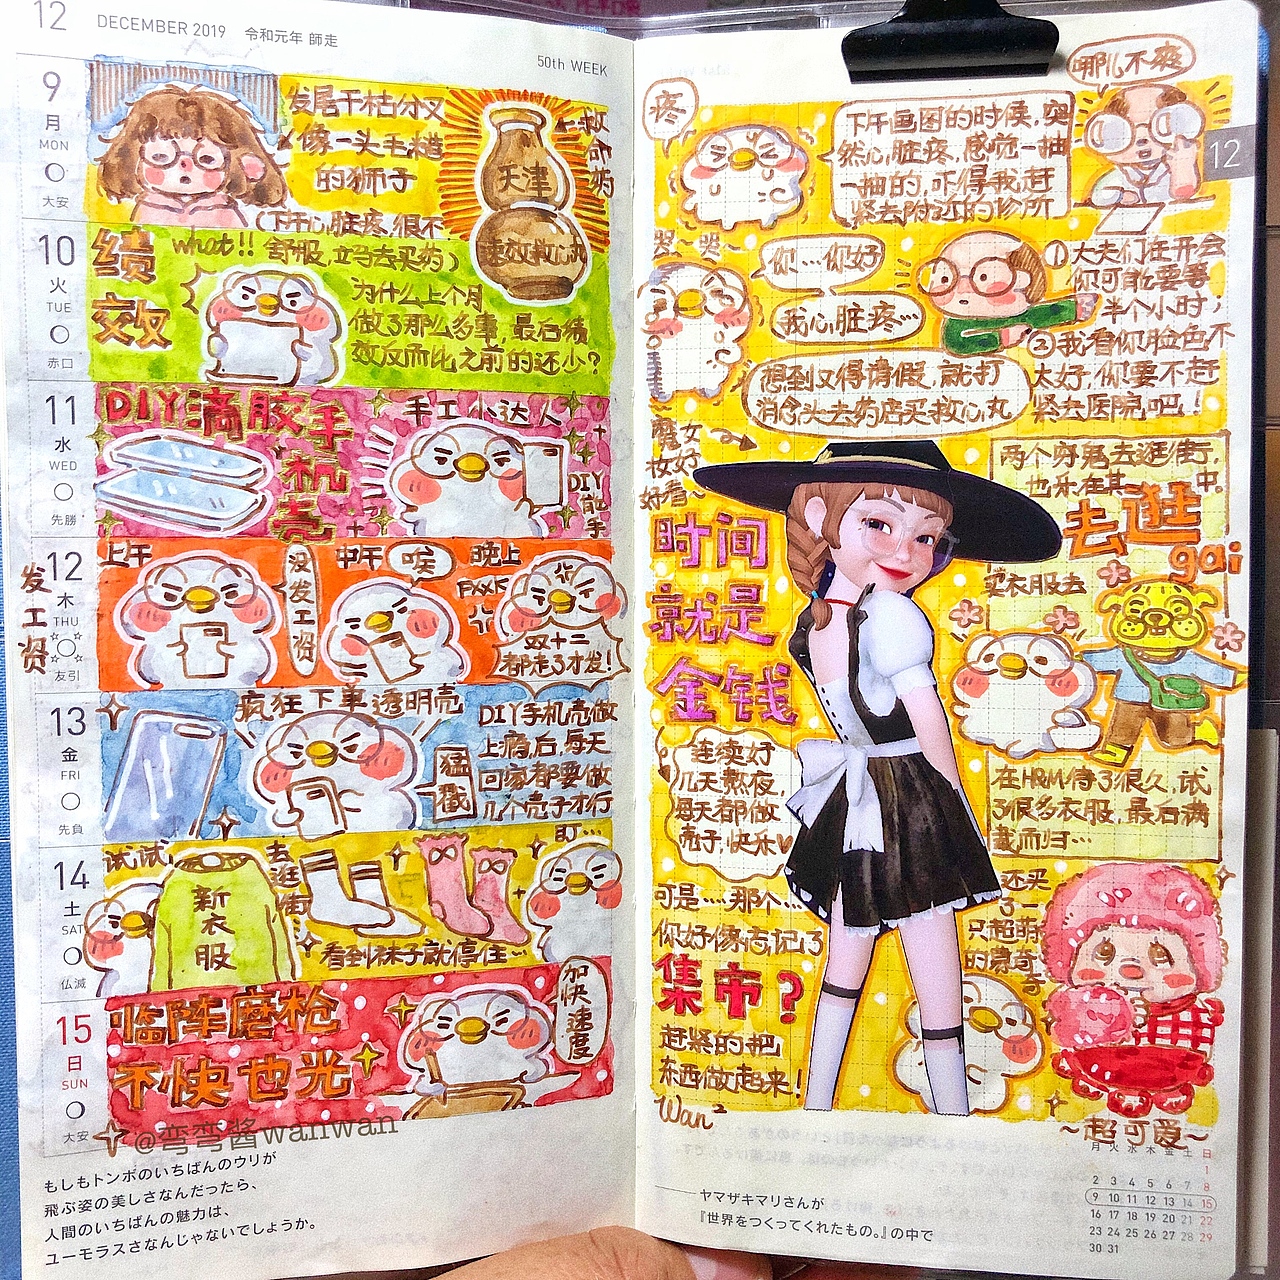 12
DECEMBER 2019 令和元年 師走
50th WEEK
9
月
MON
大安
发尾干枯分叉
像一头毛糙
的狮子
(下午心脏疼,很不
舒服,立马去买药)
天津
速效救心丸
救命药
10
火
TUE
赤口
绩效
what!!
为什么上个月
做了那么多事,最后绩
效反而比之前的还少?
11
水
WED
先勝
DIY滴胶手
机壳
手工小达人
DIY能手
12
木
THU
友引
发工资
上午
没发工资
中午
唉
晚上
双十二
都走了才发!
13
金
FRI
先負
疯狂下单透明壳
猛戳
DIY手机壳做
上瘾后,每天
回家都要做
几个壳子才行
14
土
SAT
仏滅
试试
新衣服
去逛街
看到袜子就停住…
15
日
SUN
大安
临阵磨枪
不快也光
加快速度
@弯弯酱wanwan
もしもトンボのいちばんのウリが
飛ぶ姿の美しさなんだったら、
人間のいちばんの魅力は、
ユーモラスさなんじゃないでしょうか。
12
疼
下午画图的时候,突
然心脏疼,感觉一抽
一抽的,吓得我赶
紧去附近的诊所
哪儿不爽
哭~哭~
你…你好
我心脏疼…
①大夫们在开会
你可能要等
半个小时;
②我看你脸色不
太好,你要不赶
紧去医院吧!
想到又得请假,就打
消念头去药店买救心丸
魔女
妆好
好看~
时间
就是
金钱
两个穷鬼去逛街,
也乐在其中.
去逛
gai
买衣服去
连续好
几天熬夜,
每天都做
壳子,快乐
在H&M待了很久,试
了很多衣服,最后满
载而归…
可是……那个…
你好像忘记了
集市?
赶紧的把
东西做起来!
还买
了一
只超萌
的蒙奇
奇
~超可爱~
Wan²
ヤマザキマリさんが
『世界をつくってくれたもの。』の中で
月 火 水 木 金 土 日
1
2 3 4 5 6 7 8
9 10 11 12 13 14 15
16 17 18 19 20 21 22
23 24 25 26 27 28 29
30 31